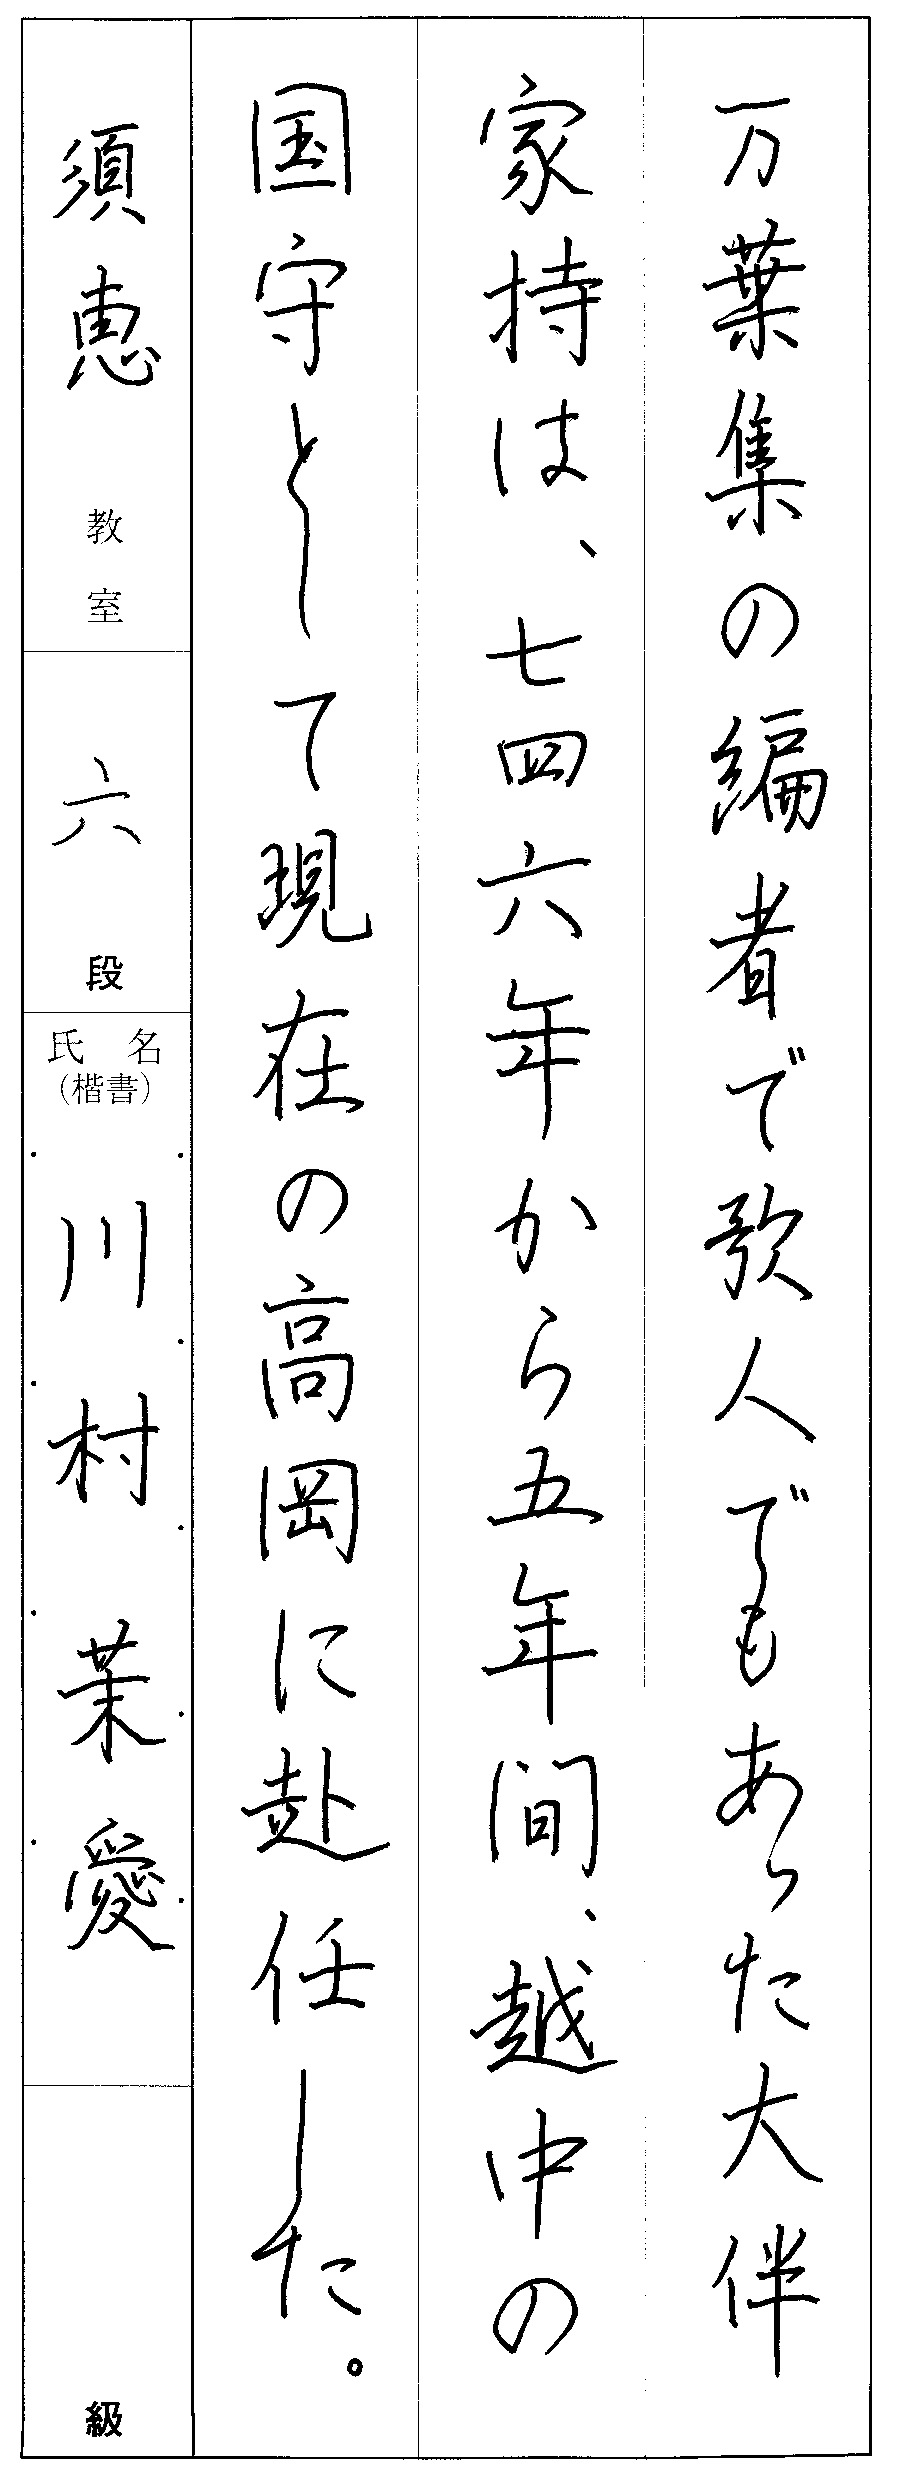 万葉集の編者で歌人でもあった大伴
家持は、七四六年から五年間、越中の
国守として現在の高岡に赴任した。
須恵 教室
六 段
氏名
(楷書)
川村 茉愛
級